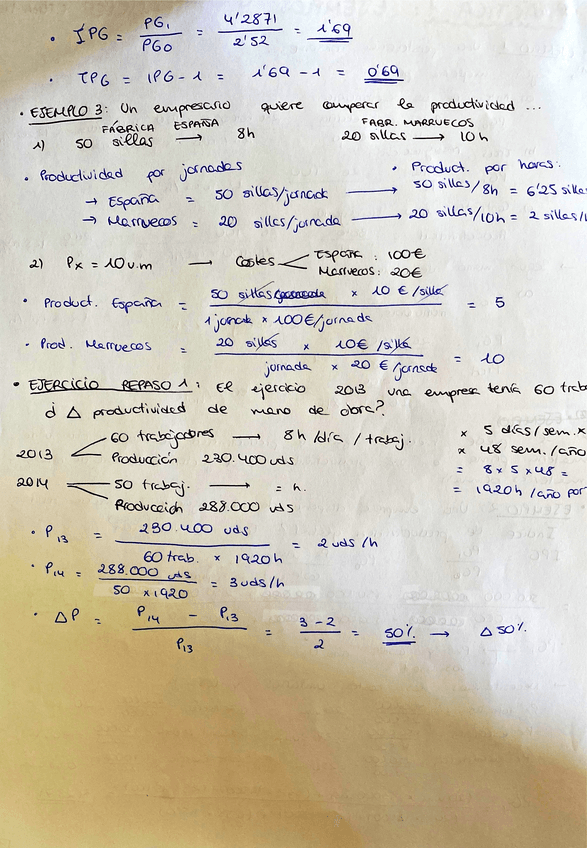 • IPG = PG₁ / PG₀ = 4'2871 / 2'52 = 1'69
• TPG = IPG - 1 = 1'69 - 1 = 0'69
• EJEMPLO 3: Un empresario quiere comparar la productividad ...
FÁBRICA ESPAÑA FABR. MARRUECOS
1) 50 sillas → 8h 20 sillas → 10h
• Productividad por jornadas • Product. por horas:
→ España = 50 sillas/jornada → 50 sillas/8h = 6'25 sillas
→ Marruecos = 20 sillas/jornada → 20 sillas/10h = 2 sillas/
2) Px = 10 u.m → Costes España: 100€
Marruecos: 20€
• Product. España = 50 sillas × 10 €/silla / 1 jornada × 100€/jornada = 5
• Prod. Marruecos = 20 sillas × 10€/silla / jornada × 20 €/jornada = 10
• EJERCICIO REPASO 1: El ejercicio 2013 una empresa tenía 60 trab
d Δ productividad de mano de obra?.
2013 60 trabajadores → 8h/día/trabaj. × 5 días/sem. ×
Producción 230.400 uds × 48 sem./año
= 8 × 5 × 48 =
2014 50 trabaj. → = h. = 1920h/año por
Producción 288.000 uds
• P₁₃ = 230.400 uds / 60 trab. × 1920h = 2 uds/h
• P₁₄ = 288.000 uds / 50 × 1920 = 3 uds/h
• ΔP = P₁₄ - P₁₃ / P₁₃ = 3 - 2 / 2 = 50% → Δ 50%.